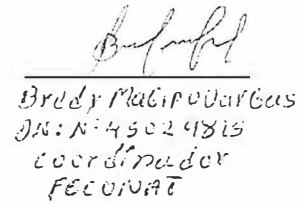 Bredy Mafipo Vargas
DN: N° 45029815
coordinador
FECONAT